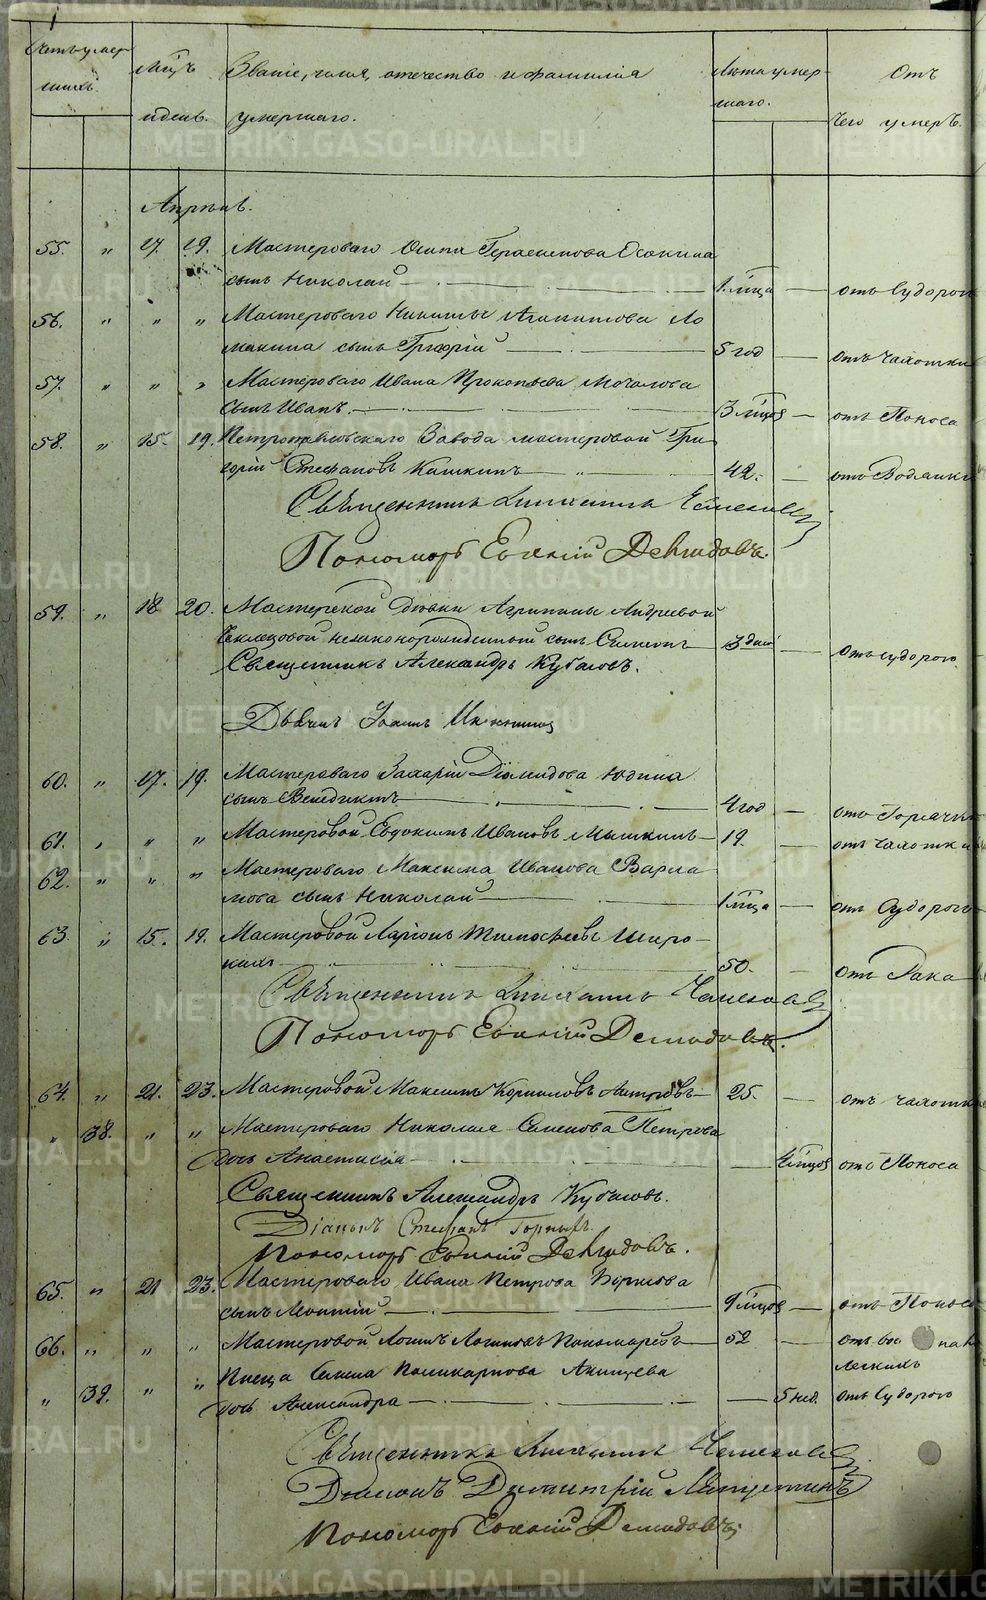 Счетъ умер Мѣсяцъ Званіе, имя, отечество и фамилія Лѣта умер- Отъ
шихъ и день. умершаго. шаго. чего умеръ.
METRIKI.GASO-URAL.RU
Апрѣль.
55. " 17. 19. Мастероваго Осипа Герасимова Осокина
сынъ Николай 1 мѣсяца отъ Судорог
56. " " " Мастероваго Никиты Агапитова Ло
макина сынъ Григорій 5 год отъ Чахотки
57. " " " Мастероваго Ивана Прокопьева Мочалова
сынъ Иванъ. 3 мѣсяцов отъ Поноса
58. " 15. 19. Петропавловскаго Завода мастеровой Гри
горій Стефановъ Кашкинъ 42. отъ Водянки
Священникъ
Пономарь Евгеній Демидовъ.
59. " 18 20. Мастерской Дѣвки Агрипины Андреевой
незаконорожденный сынъ Симеонъ 3 дней отъ судорог.
Священникъ Александръ Кубасовъ.
Дьячекъ Іоаннъ
60. " 17. 19. Мастероваго Захарія Діомидова Юдина
сынъ Венедиктъ 4 год отъ Горячки
61. " " " Мастеровой Евдокимъ Ивановъ Мышкинъ 19. отъ Чахотки
62. " " " Мастероваго Максима Иванова Варла
мова сынъ Николай 1 мѣсяца отъ Судорог
63. " 15. 19. Мастеровой Ларіонъ Тимофеевъ Широ-
кихъ 50. отъ Рака
Священникъ
Пономарь Евгеній Демидовъ.
64. " 21. 23. Мастеровой Максимъ Корниловъ 25. отъ чахотк
" 38. " " Мастероваго Николая Семенова Петрова
дочь Анастасія мѣсяцов отъ Поноса
Священникъ Александръ Кубасовъ.
Діаконъ Стефанъ Горныхъ.
Пономарь Евгеній Демидовъ.
65. " 21 23. Мастероваго Ивана Петрова Борисова
сынъ 9 мѣсяцов отъ Поноса
66. " " " Мастеровой Логинъ Логиновъ Пономаревъ 52 отъ вос пал
легкихъ
" 39. " " Писца Семена Поликарпова
дочь Александра 5 нед. отъ Судорог
Священникъ
Діаконъ Димитрій
Пономарь Евгеній Демидовъ.